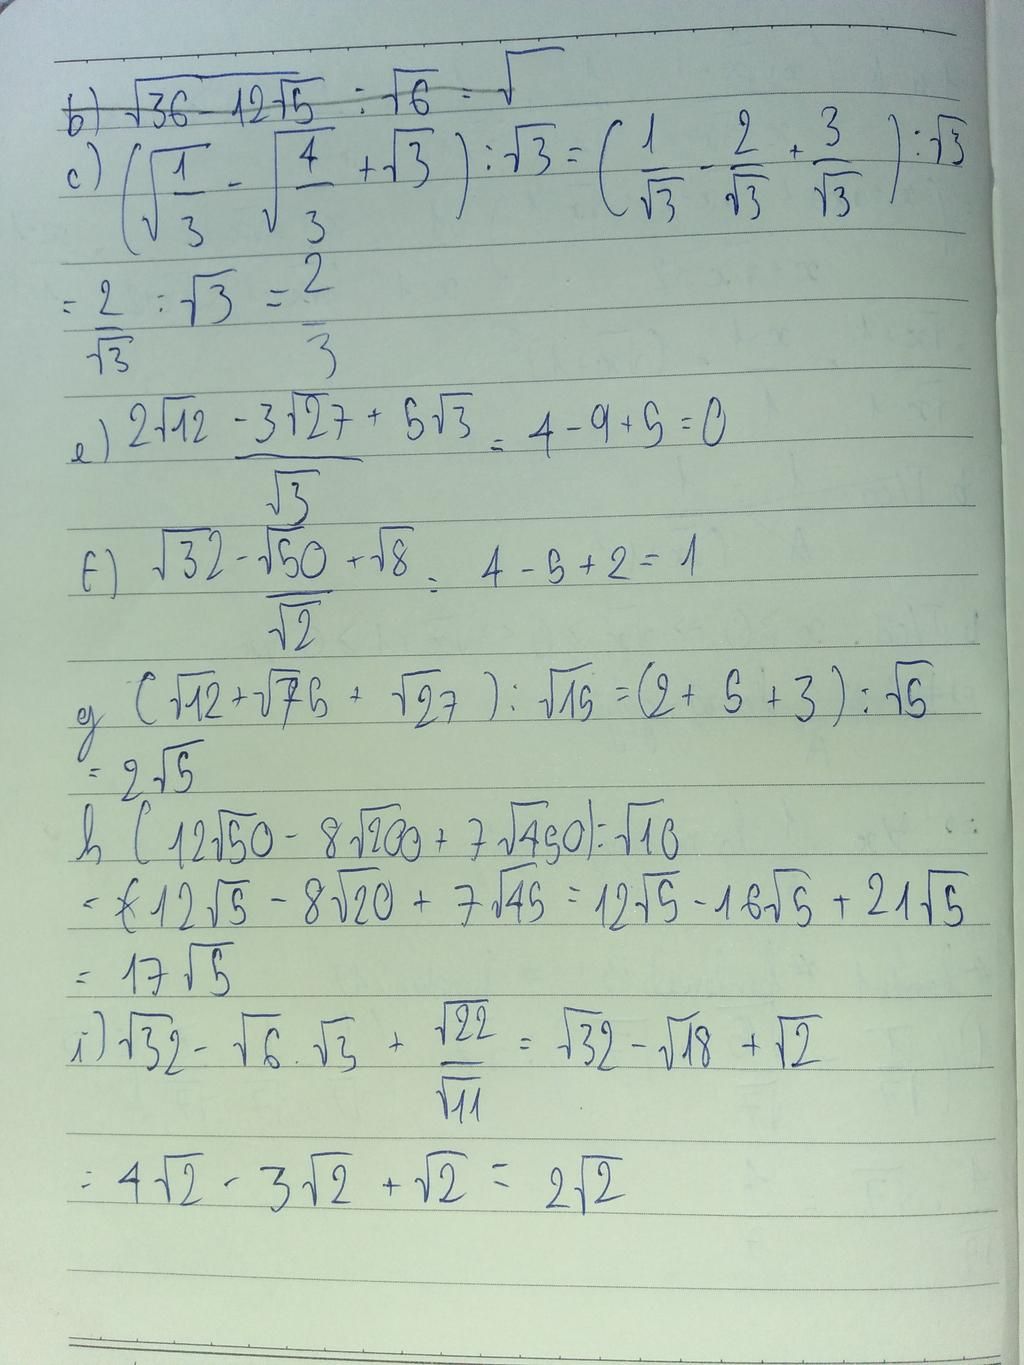 b) √(36 - 12√5) : √6 = √
c) (√(1/3) - √(4/3) + √3) : √3 = (1/√3 - 2/√3 + 3/√3) : √3
= 2/√3 : √3 = 2/3
e) (2√12 - 3√27 + 5√3)/√3 = 4 - 9 + 5 = 0
f) (√32 - √50 + √8)/√2 = 4 - 5 + 2 = 1
g (√12 + √75 + √27) : √15 = (2 + 5 + 3) : √5
= 2√5
h (12√50 - 8√200 + 7√450) : √10
= 12√5 - 8√20 + 7√45 = 12√5 - 16√5 + 21√5
= 17√5
i) √32 - √6 . √3 + √22/√11 = √32 - √18 + √2
= 4√2 - 3√2 + √2 = 2√2